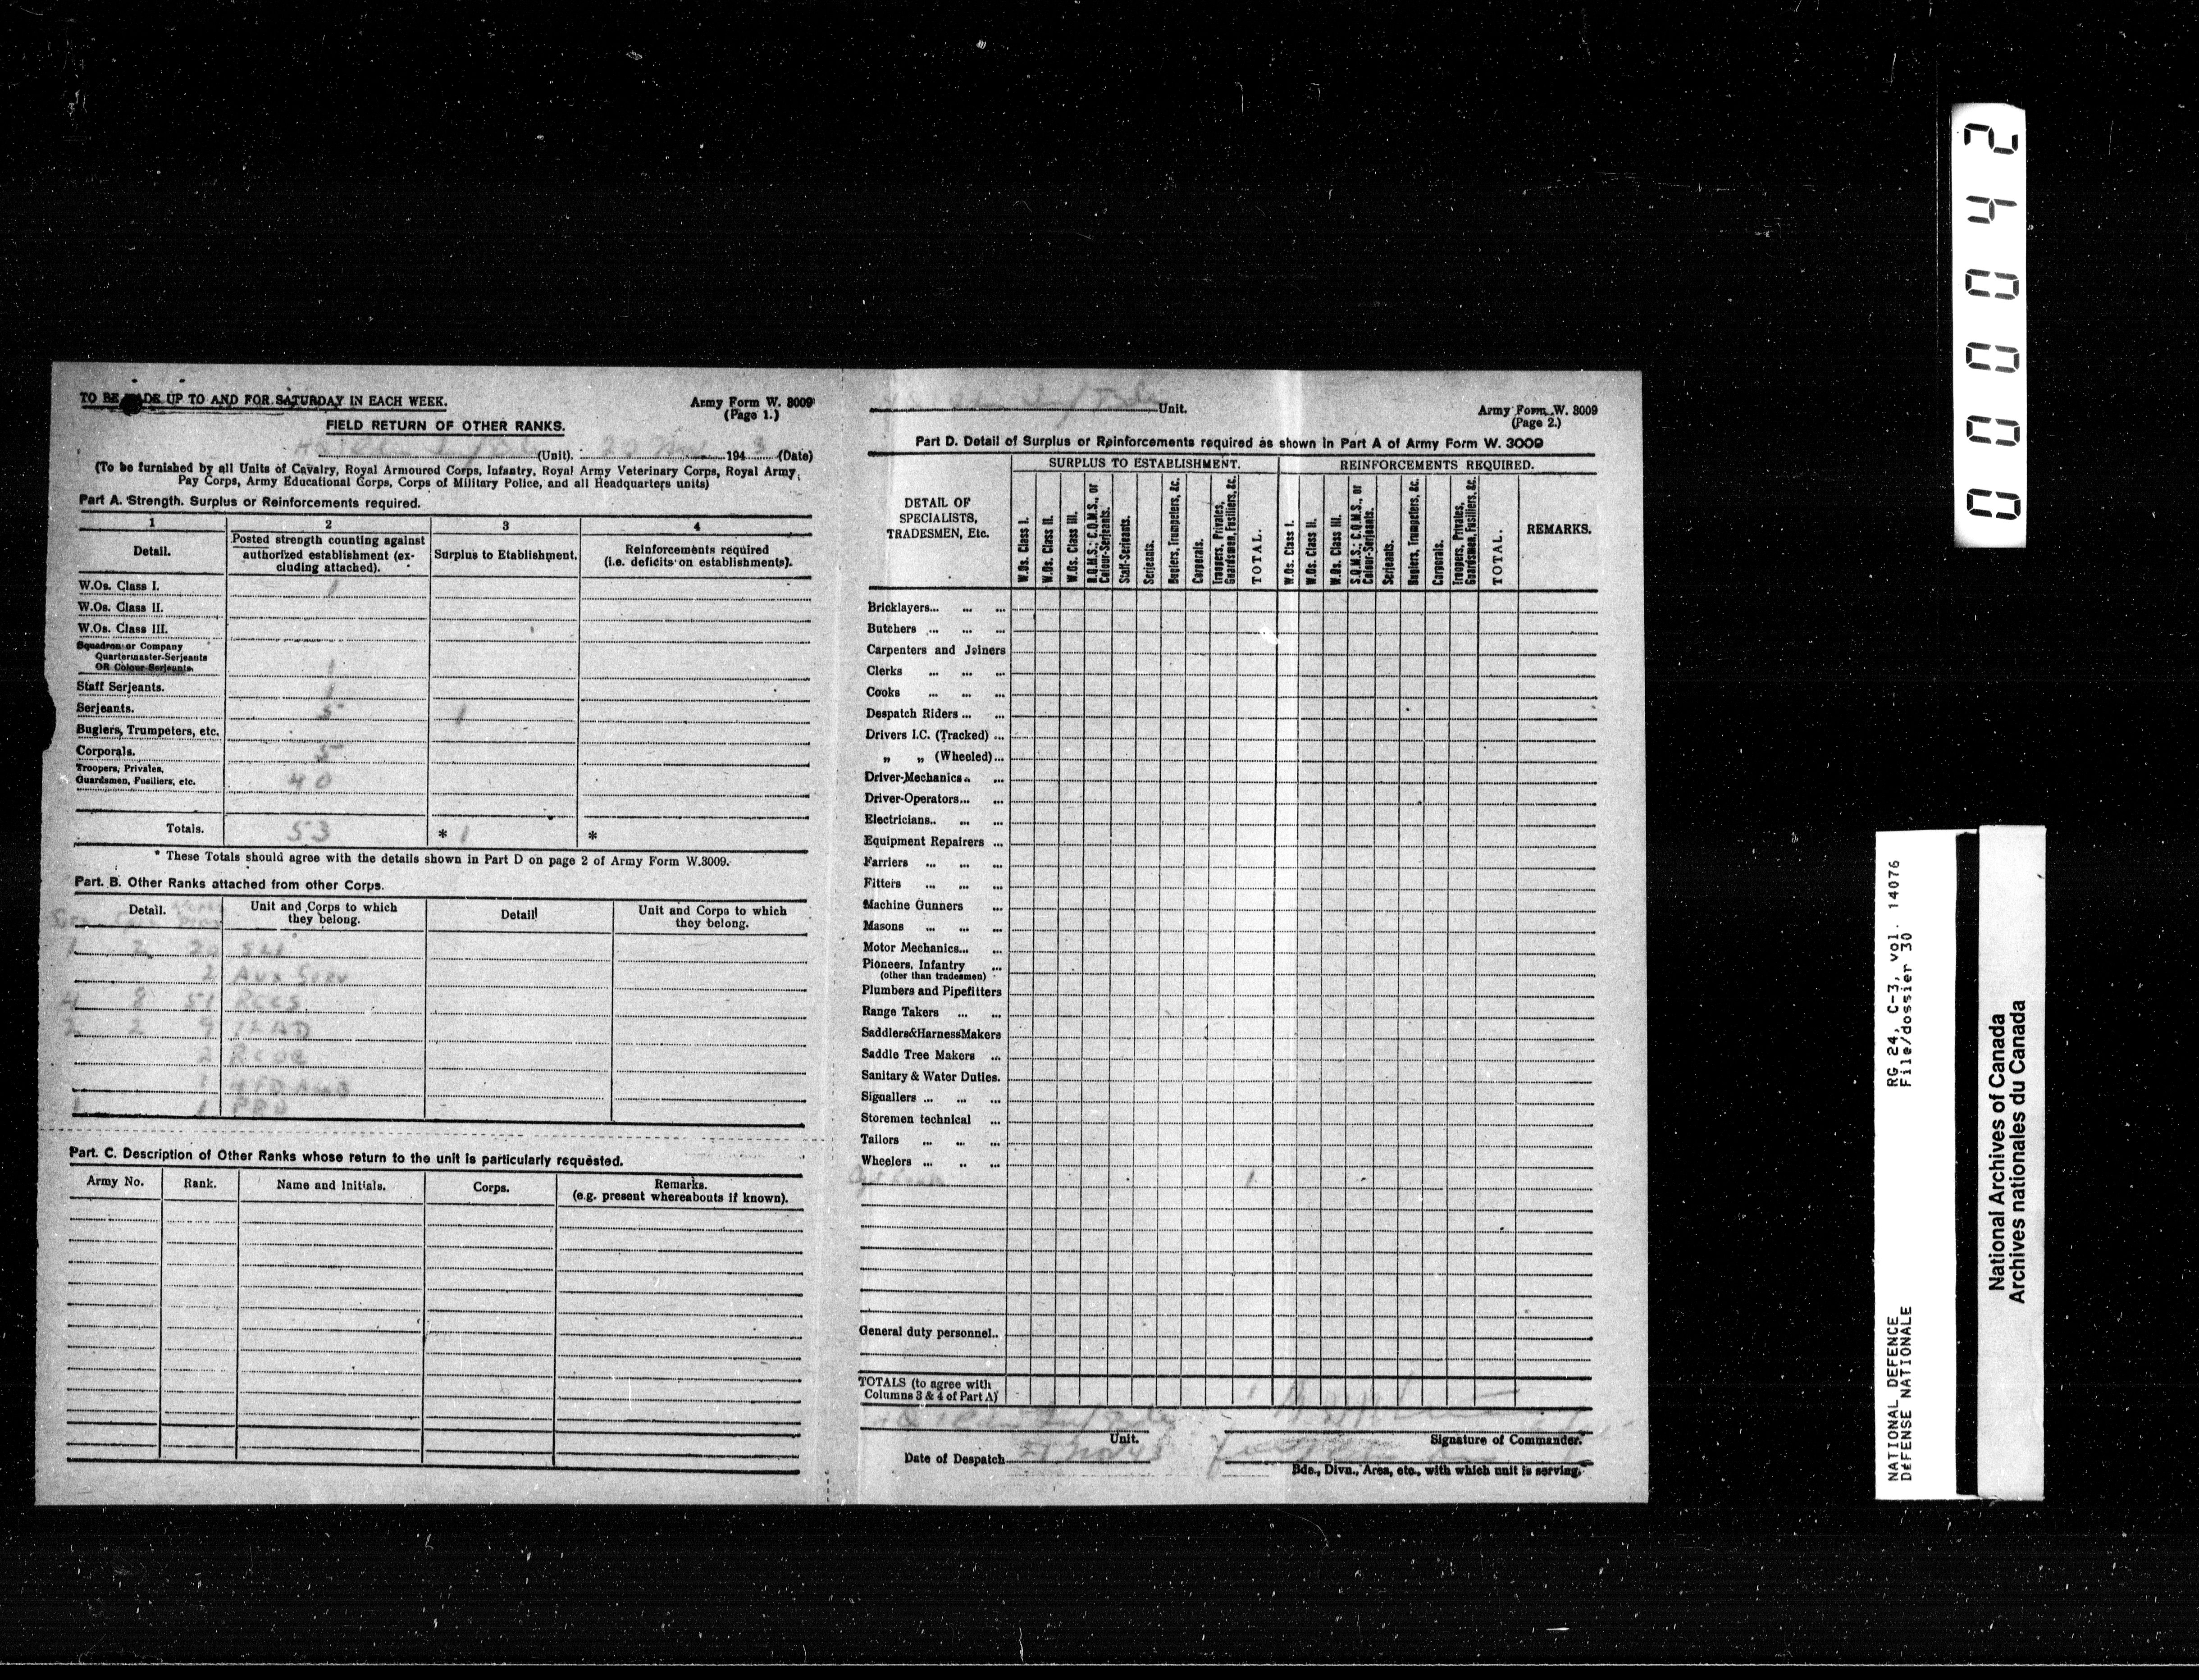 TO BE MADE UP TO AND FOR SATURDAY IN EACH WEEK.
Army Form W. 3009
(Page 1.)
FIELD RETURN OF OTHER RANKS.
(Unit). 20 Nov 1943 (Date)
(To be furnished by all Units of Cavalry, Royal Armoured Corps, Infantry, Royal Army Veterinary Corps, Royal Army
Pay Corps, Army Educational Corps, Corps of Military Police, and all Headquarters units)
Part A. Strength. Surplus or Reinforcements required.
1 2 3 4
Detail. Posted strength counting against authorized establishment (excluding attached). Surplus to Etablishment. Reinforcements required (i.e. deficits on establishments).
W.Os. Class I. 1
W.Os. Class II.
W.Os. Class III.
Squadron or Company
Quartermaster-Serjeants
OR Colour-Serjeants. 1
Staff Serjeants. 1
Serjeants. 5 1
Buglers, Trumpeters, etc.
Corporals. 5
Troopers, Privates,
Guardsmen, Fusiliers, etc. 40
Totals. 53 * 1 *
* These Totals should agree with the details shown in Part D on page 2 of Army Form W.3009.
Part. B. Other Ranks attached from other Corps.
Detail. Unit and Corps to which they belong. Detail Unit and Corps to which they belong.
1 2 22
2 Aux Serv
4 8 51 RCCS
2 2 9 LAD
2
1
1 1
Part. C. Description of Other Ranks whose return to the unit is particularly requested.
Army No. Rank. Name and Initials. Corps. Remarks. (e.g. present whereabouts if known).
Unit.
Army Form W. 3009
(Page 2.)
Part D. Detail of Surplus or Reinforcements required as shown in Part A of Army Form W. 3009
DETAIL OF SPECIALISTS, TRADESMEN, Etc.
SURPLUS TO ESTABLISHMENT. REINFORCEMENTS REQUIRED.
W.Os. Class I.
W.Os. Class II.
W.Os. Class III.
R.Q.M.S.; C.Q.M.S., or Colour-Serjeants.
Staff-Serjeants.
Serjeants.
Buglers, Trumpeters, &c.
Corporals.
Troopers, Privates, Guardsmen, Fusiliers, &c.
TOTAL.
W.Os. Class I.
W.Os. Class II.
W.Os. Class III.
S.Q.M.S.; C.Q.M.S., or Colour-Serjeants.
Serjeants.
Buglers, Trumpeters, &c.
Corporals.
Troopers, Privates, Guardsmen, Fusiliers, &c.
TOTAL.
REMARKS.
Bricklayers... ... ...
Butchers ... ... ...
Carpenters and Joiners
Clerks ... ... ...
Cooks ... ... ...
Despatch Riders ... ...
Drivers I.C. (Tracked) ...
„ „ (Wheeled)...
Driver-Mechanics.. ...
Driver-Operators... ...
Electricians.. ... ...
Equipment Repairers ...
Farriers ... ... ...
Fitters ... ... ...
Machine Gunners ...
Masons ... ... ...
Motor Mechanics... ...
Pioneers, Infantry ...
(other than tradesmen)
Plumbers and Pipefitters
Range Takers ... ...
Saddlers&HarnessMakers
Saddle Tree Makers ...
Sanitary & Water Duties.
Signallers ... ... ...
Storemen technical ...
Tailors ... ... ...
Wheelers ... .. ...
1
General duty personnel..
TOTALS (to agree with
Columns 3 & 4 of Part A) 1
Unit.
Signature of Commander.
Date of Despatch 21 Nov 43
Bde., Divn., Area, etc., with which unit is serving.
00042
RG 24, C-3, vol. 14076
File/dossier 30
NATIONAL DEFENCE
DÉFENSE NATIONALE
National Archives of Canada
Archives nationales du Canada